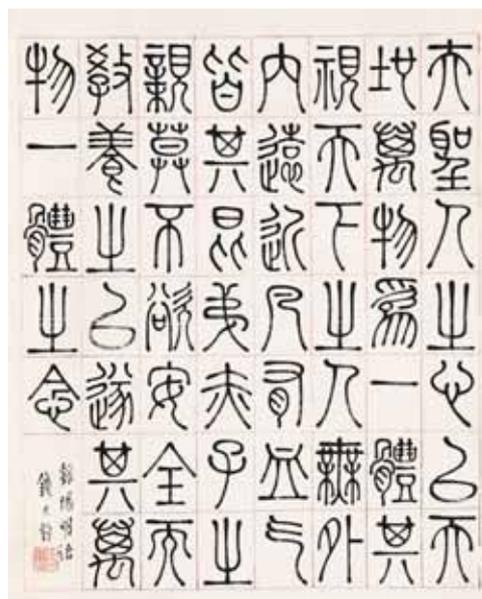 夫聖人之心以天
地萬物爲一體其
視天下之人無外
內遠近凡有血气
皆其昆弟赤子之
親莫不欲安全而
教養之以遂其萬
物一體之念
錄陽明語
錢大昕